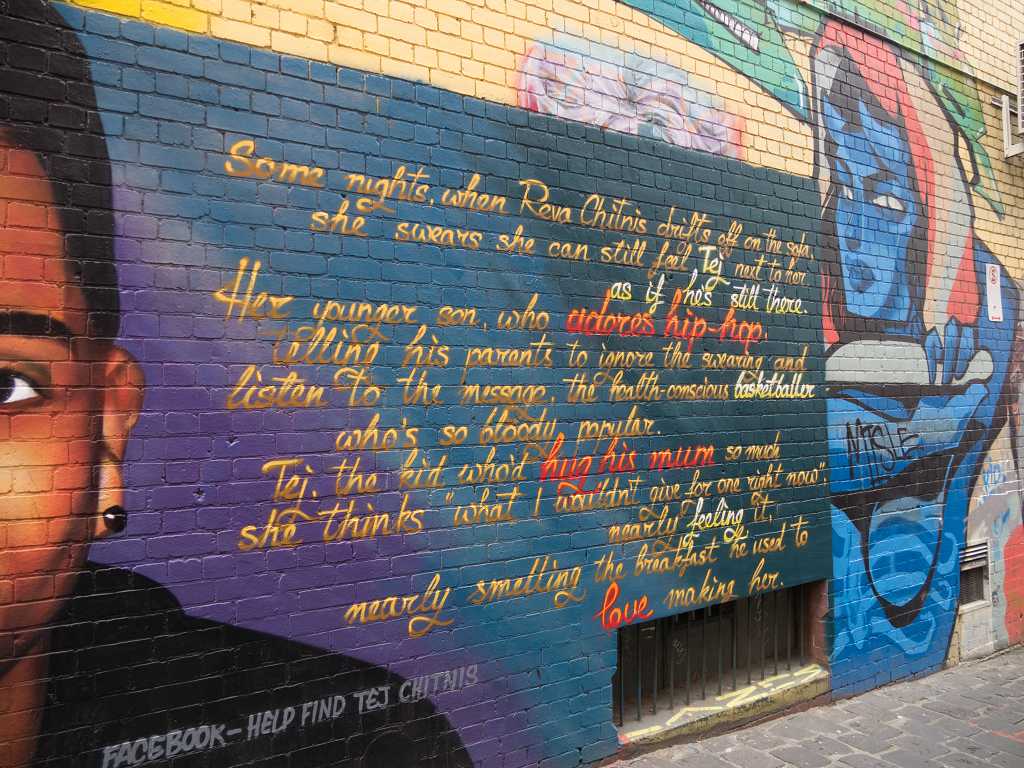 Some nights, when Reva Chitnis drifts off on the sofa,
she swears she can still feel Tej next to her
as if he's still there.
Her younger son, who adores hip-hop,
telling his parents to ignore the swearing and
listen to the message, the health-conscious basketballer
who's so bloody popular.
Tej, the kid who'd hug his mum so much
she thinks "what I wouldn't give for one right now".
nearly feeling it,
nearly smelling the breakfast he used to
love making her.
FACEBOOK - HELP FIND TEJ CHITNIS